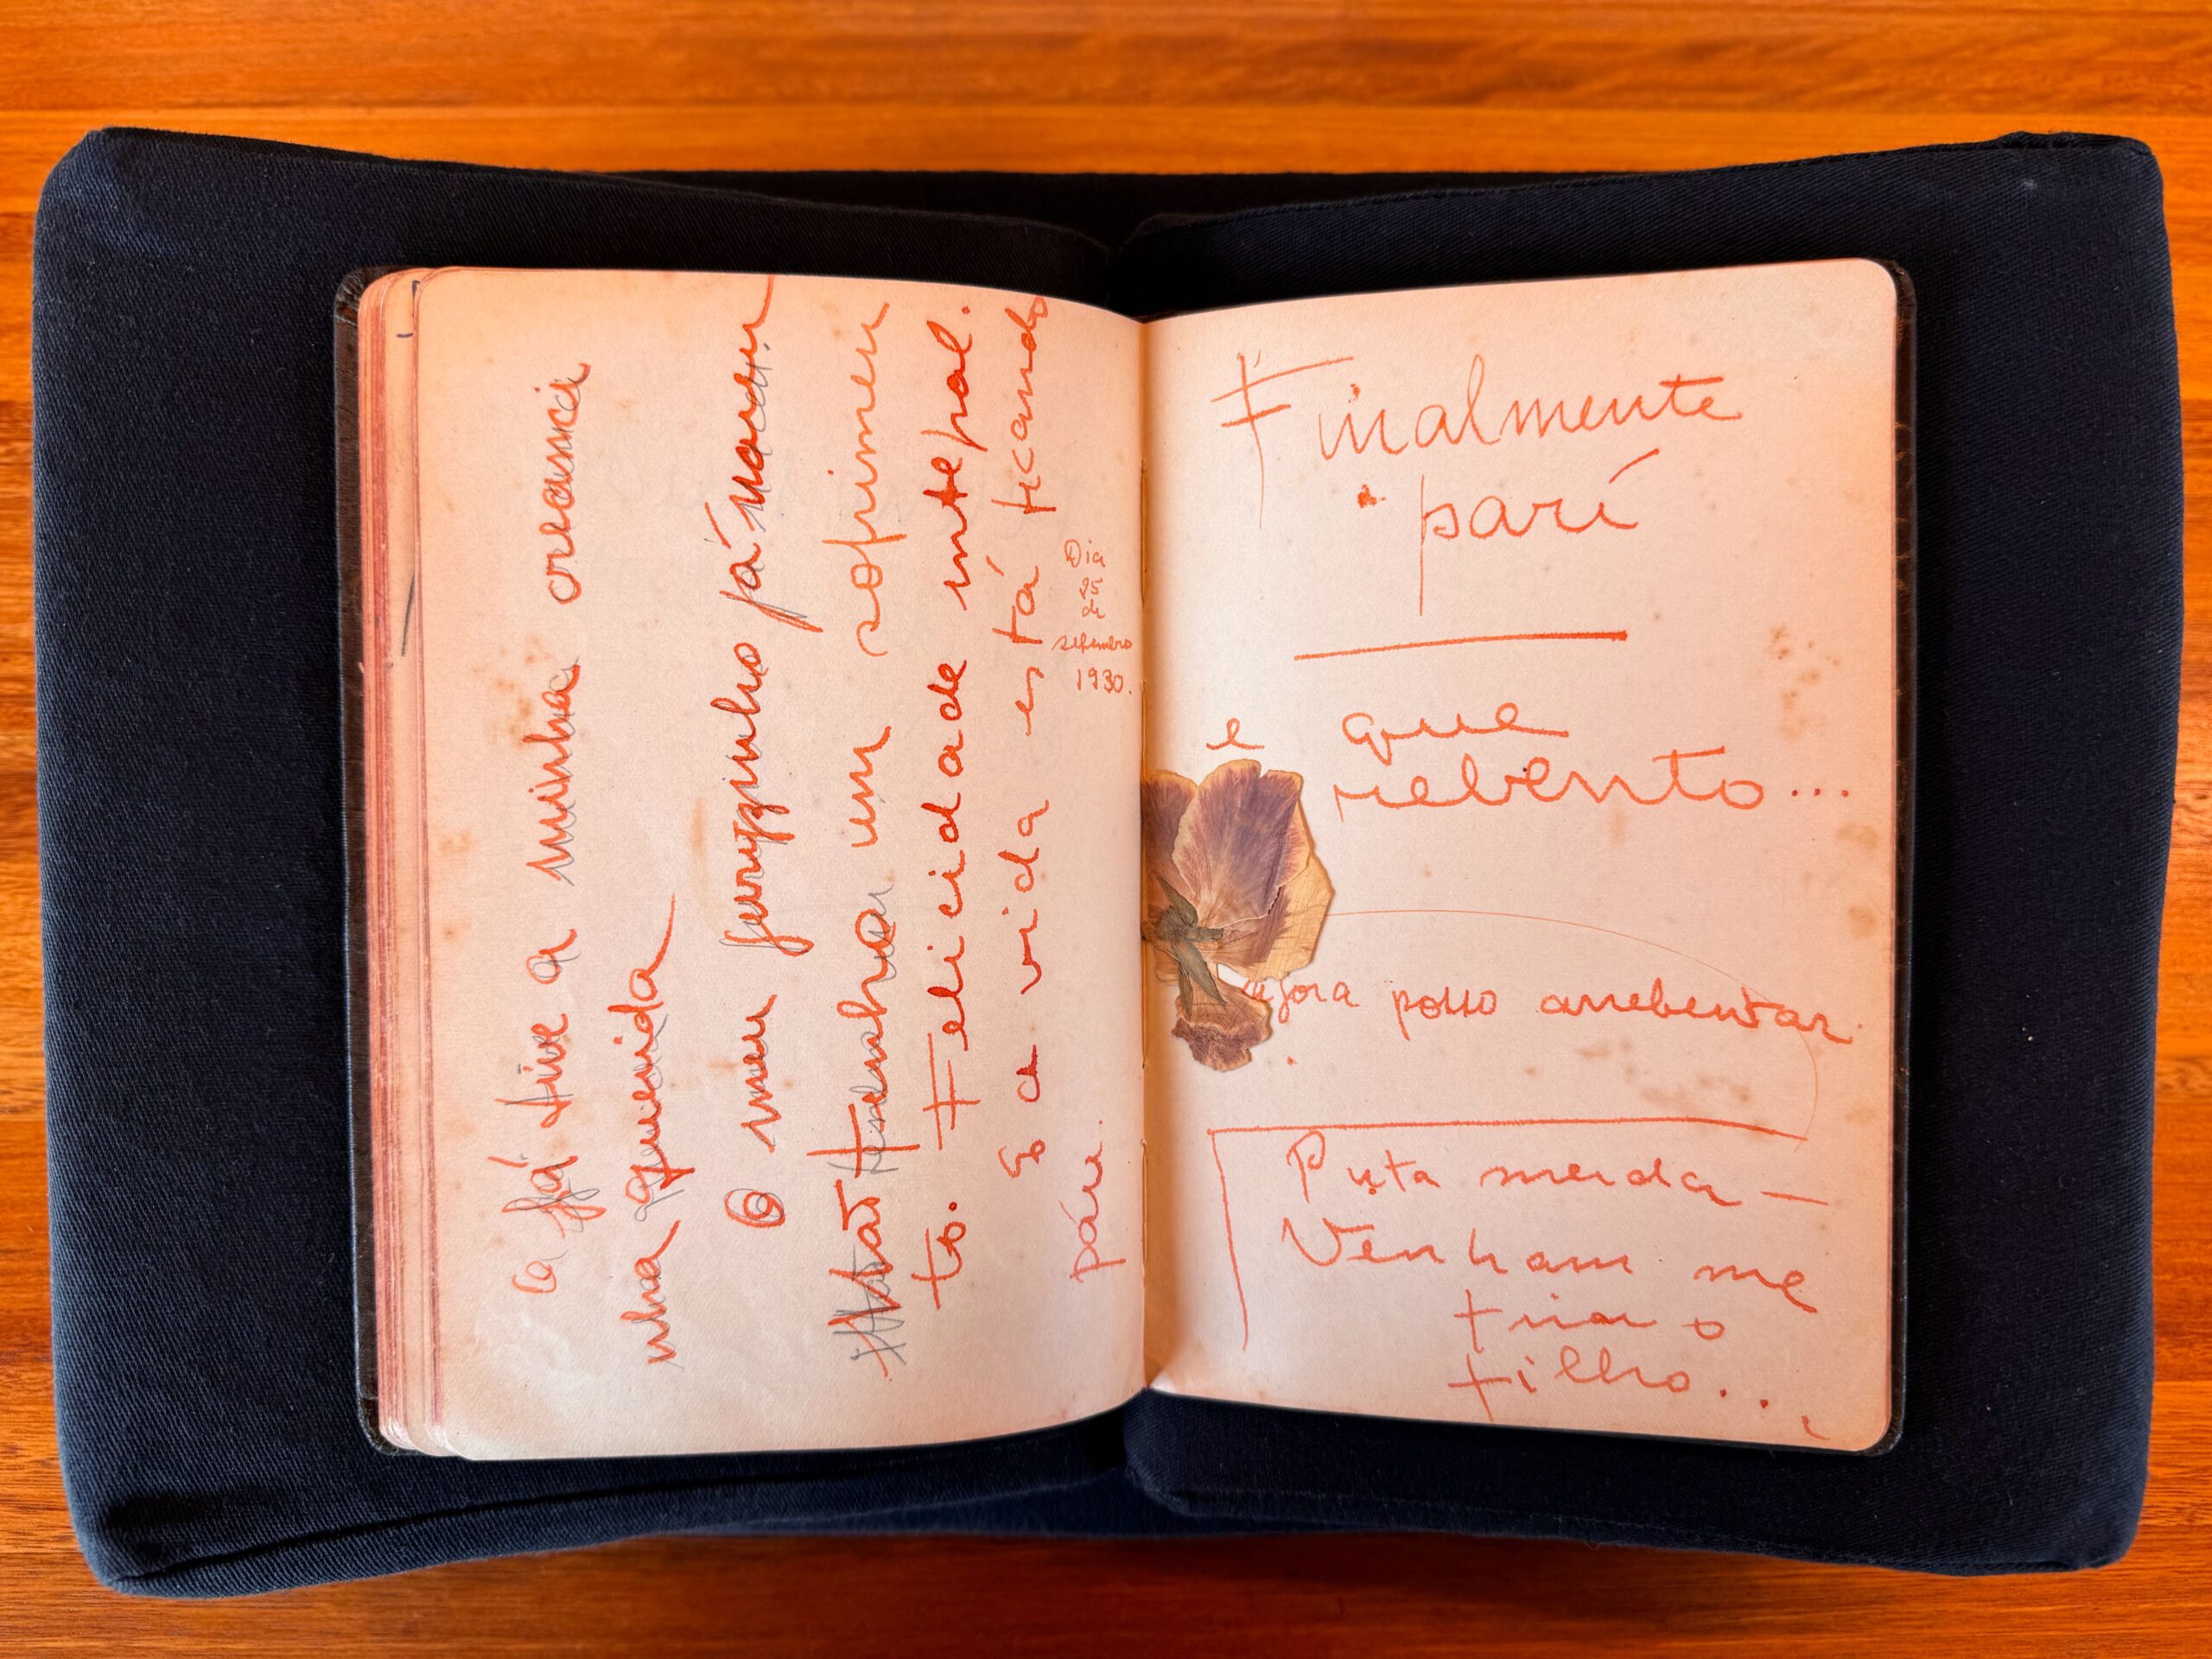 já tive a minha creanci
nha querida
O meu já nasceu
Não tenho um sofrimen
to. Felicidade integral.
E a vida está ficando
páre.
Dia
25
de
setembro
1930.
Finalmente
parí
e que
rebento...
Agora posso arrebentar.
Puta merda —
Venham me
tirar o
filho...